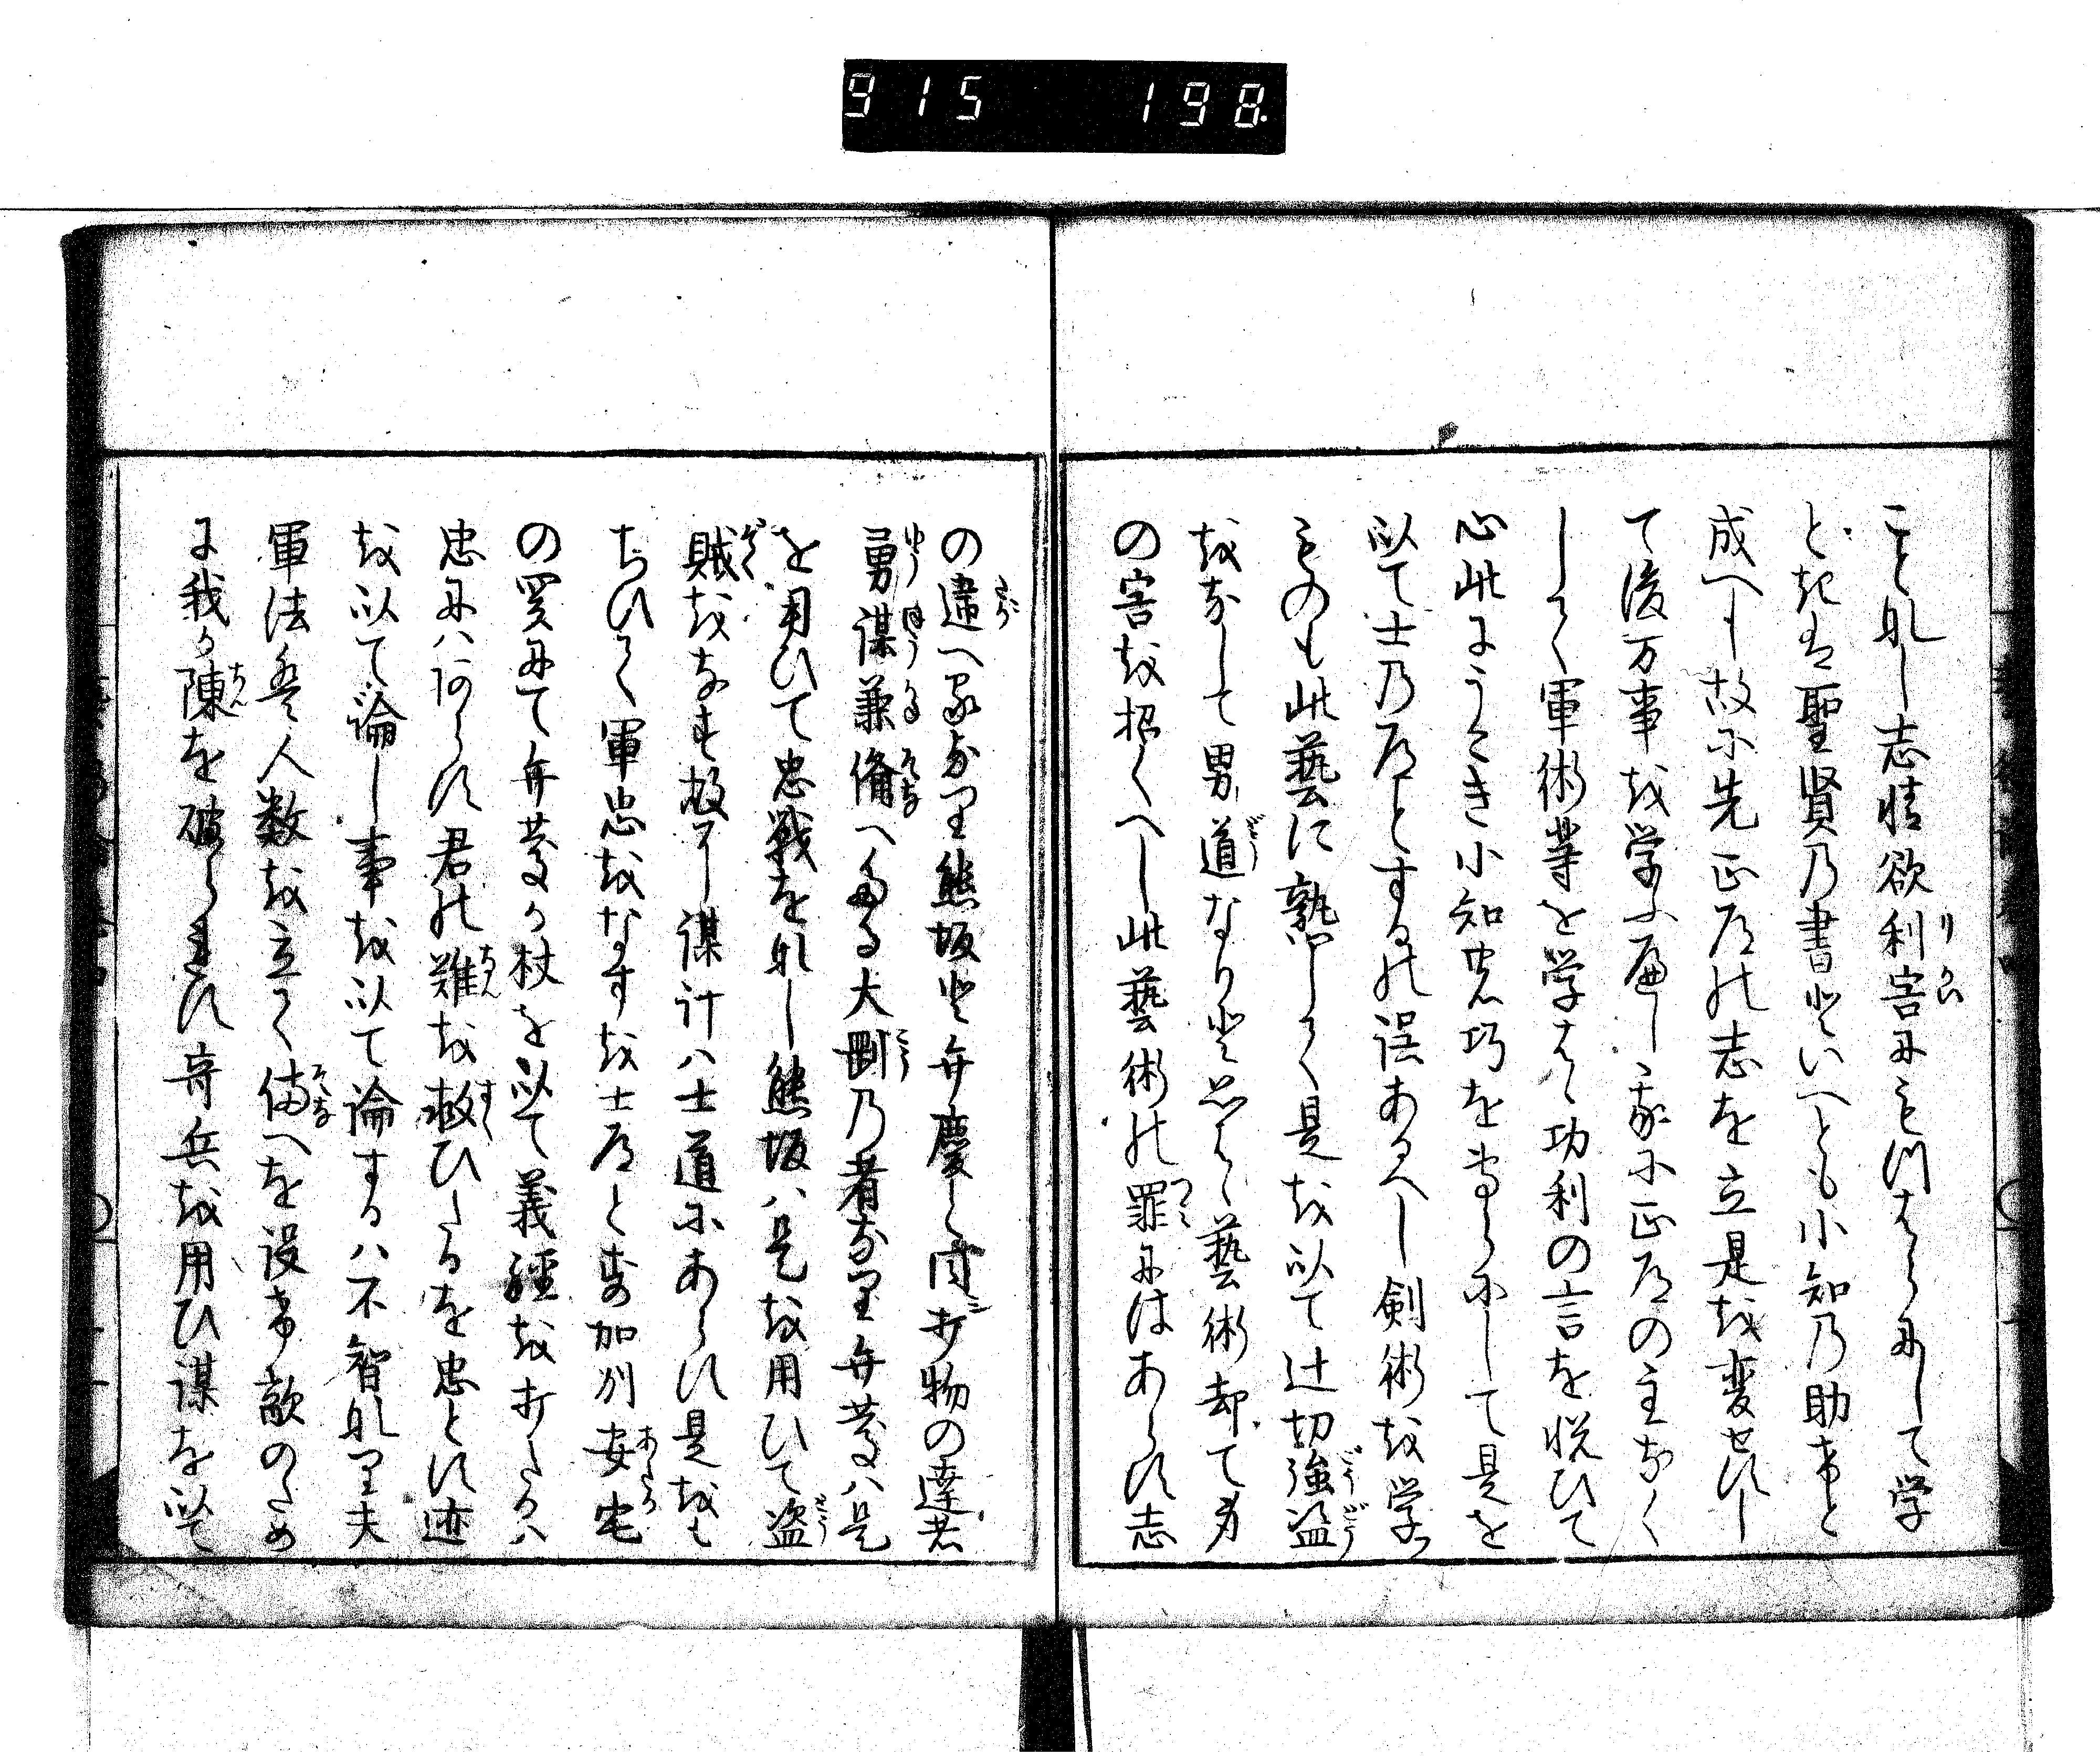 915 198.
こと非し志情欲利害にもつはらにして学
ときは聖賢乃書といへとも小知乃助けと
成へし故に先正道の志を立是を変せすし
て後万事を学ふ庿し我に正道の主なく
して軍術等を学はゝ功利の言を悦ひて
心此にうこき小知世巧を専らにして是を
以て士乃道とするの誤あるへし剣術を学
ものも此藝に熟して是を以て辻切強盗
をなして男道なりと思はゝ藝術却て身
の害を招くへし此藝術の罪にはあらす志
の違へるなり熊坂と弁慶と同シ打物の達者
勇謀兼備へたる大剛乃者なり弁慶ハ是
を用ひて忠戦をなし熊坂ハ是を用ひて盗
賊をなす故に謀計ハ士道にあらす是をも
ちひて軍忠をなすを士道とす加州安宅
の関にて弁慶か杖を以て義経を打たるハ
忠にハあらす君の難を救ひたるを忠とす迹
を以て論し事を以て論するハ不智なり夫
軍法ハ人数を立て備へを設け敵のため
に我か陳を破られす奇兵を用ひ謀を以て